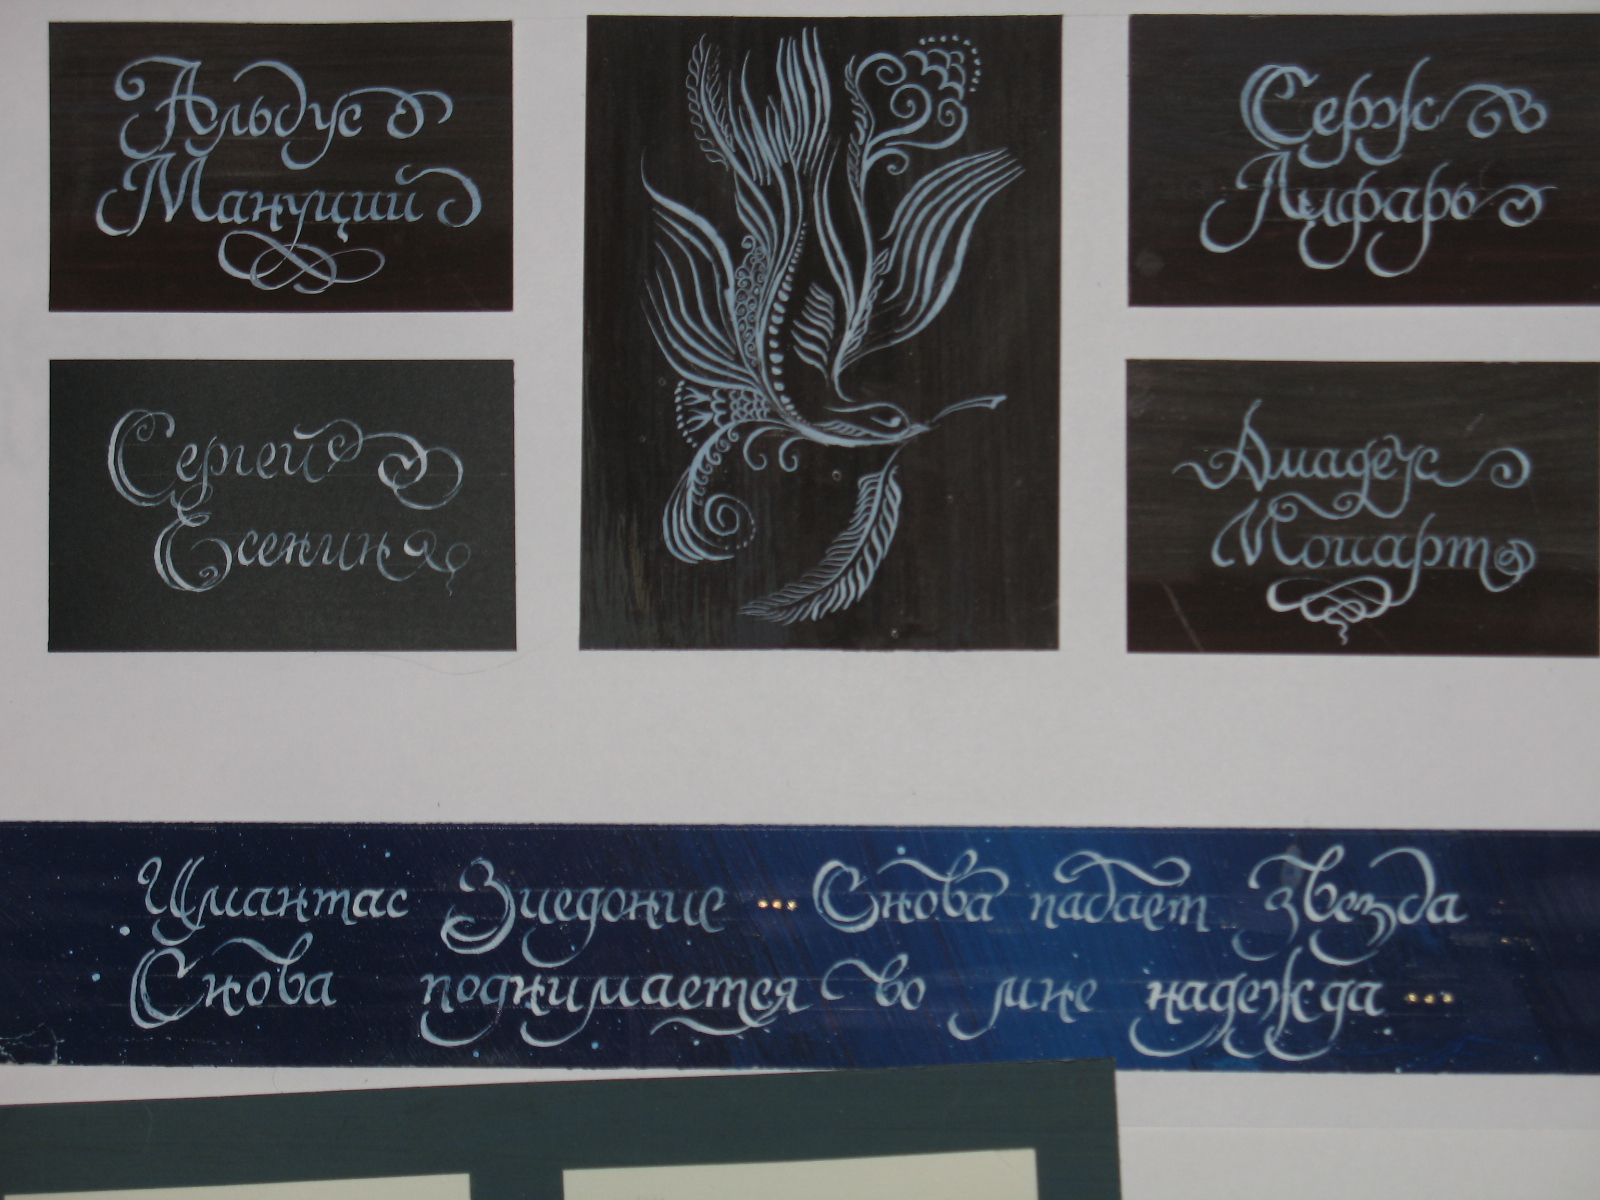 Альдус
Мануций
Сергей
Есенин
Серж
Лифарь
Амадеус
Моцарт
Имантас Зиедонис ... Снова падает звезда
Снова поднимается во мне надежда ...